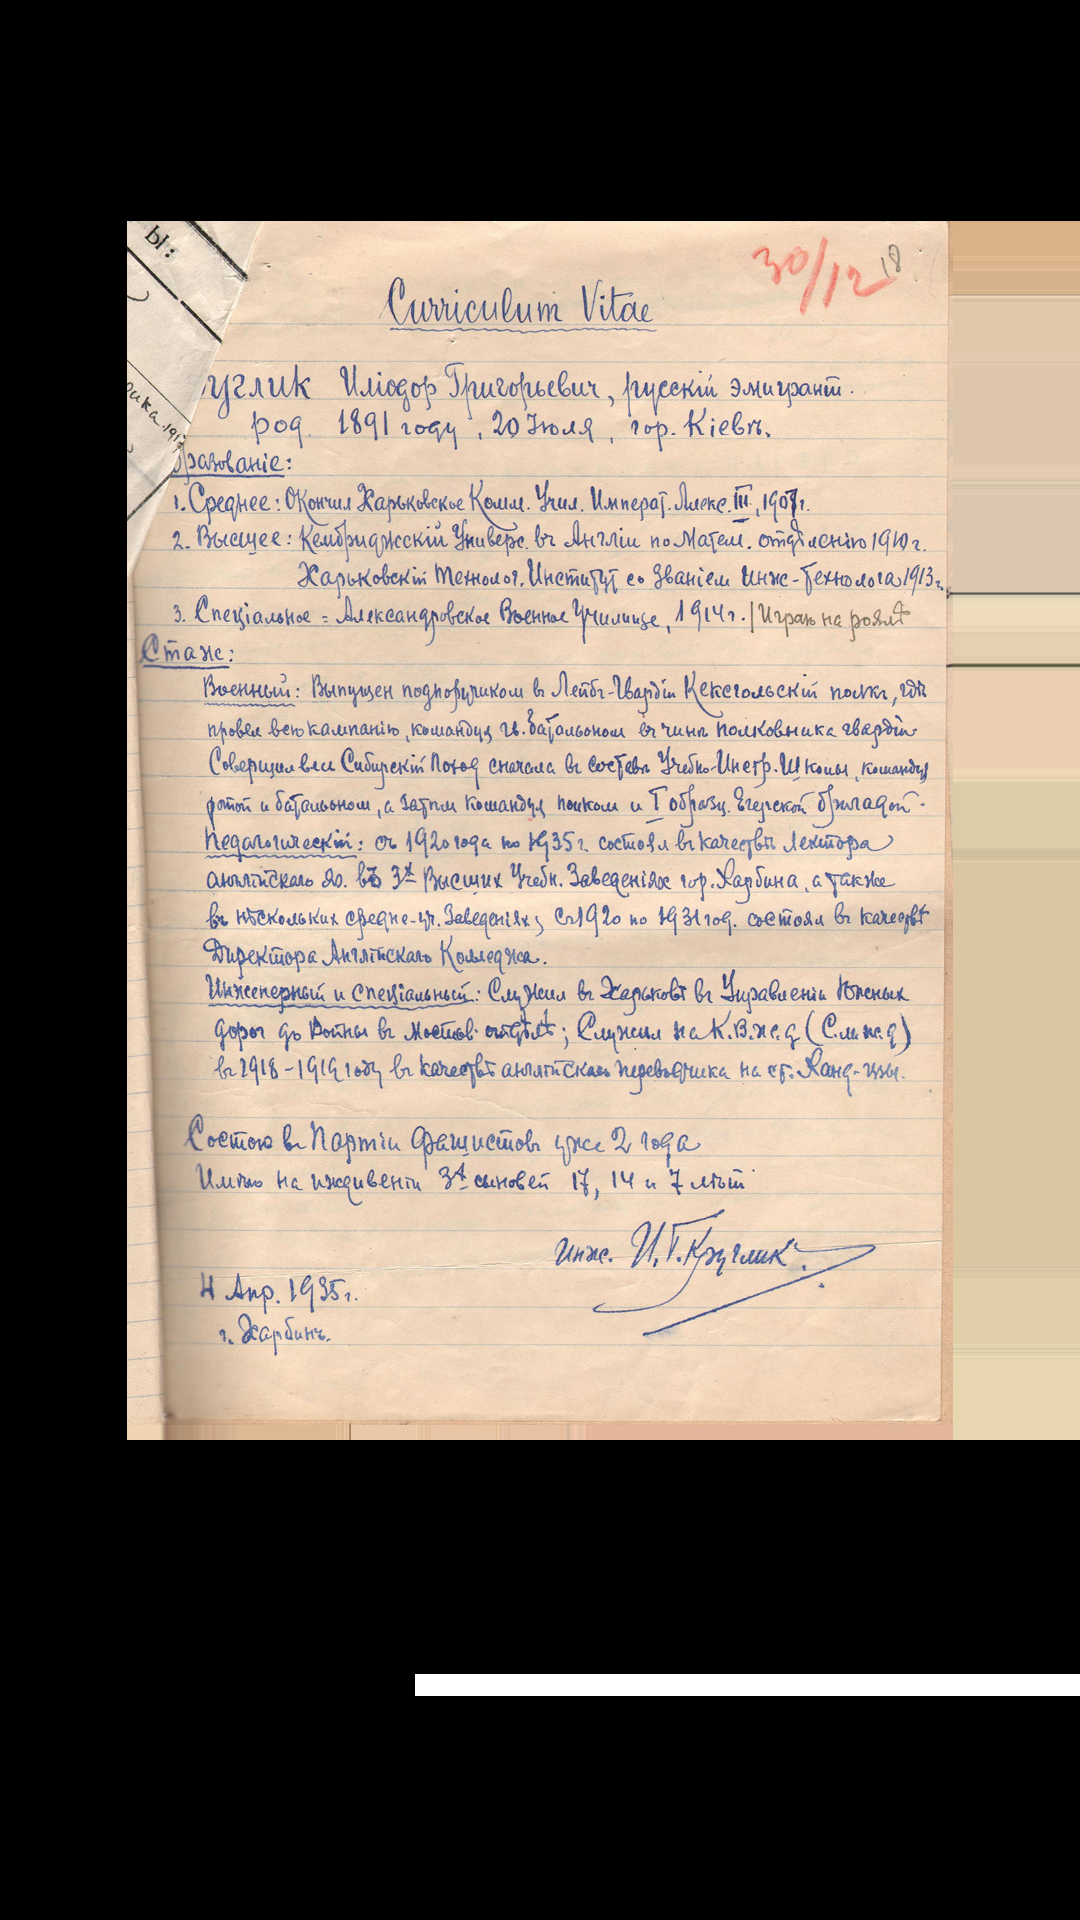 ы:
30/12
18
Curriculum Vitae
углик Иліодор Григорьевич, русскій эмигрант.
род. 1891 году, 20 Іюля, гор. Кіевъ.
разованіе:
1. Среднее: Окончил Харьковское Комм. Учил. Императ. Алекс. III, 1907г.
2. Высшее: Кембриджскій Универс. въ Англіи по Матем. отдѣленію 1910г.
Харьковскій Технолог. Институт со Званіем Инж-Технолога 1913г.
3. Спеціальное = Александровское Военное Училище, 1914г. / Играю на роялѣ
Стаж:
Военный: Выпущен подпоручиком в Лейб-Гвардіи Кексгольскій полкъ, гдѣ
провел всю кампанію, командуя гв. батальоном въ чинѣ полковника гвардіи.
Совершил весь Сибирскій Поход сначала в составѣ Учебно-Инстр. Школы, командуя
ротой и батальоном, а затѣм командуя полком и I образц. Егерской бригадой.
Педагогическій: съ 1920 года по 1935г. состоял в качествѣ Лектора
англійскаго яз. въ 3х Высших Учебн. Заведеніях гор. Харбина, а также
въ нѣскольких средне-уч. Заведеніях; съ 1920 по 1931 год. состоял в качествѣ
Директора Англійскаго Колледжа.
Инженерный и спеціальный: Служил в Харьковѣ в Управленіи Южных
дорог до Войны в мостов. отдѣлѣ; Служил на К.В.ж.д. (С.м.ж.д)
в 1918-1919 году в качествѣ англійскаго переводчика на ст. Ханд-
Состою в Партіи Фашистовъ уже 2 года
Имѣю на иждивеніи 3х сыновей 17, 14 и 7 лѣт
инж. И.Г. Круглик.
4 Апр. 1935г.
г. Харбинъ.